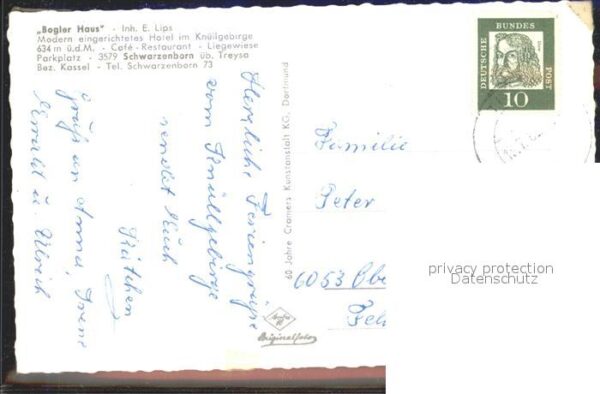 „Bogler Haus" - Inh. E. Lips
Modern eingerichtetes Hotel im Knüllgebirge
634 m ü.d.M. - Café - Restaurant - Liegewiese
Parkplatz - 3579 Schwarzenborn üb. Treysa
Bez. Kassel - Tel. Schwarzenborn 73
Herzliche Feriengrüße
vom Knüllgebirge
sendet Euch
Kätchen
Gruß an Anna, Irene
Ewald u. Ulrich
60 Jahre Cramers Kunstanstalt KG, Dortmund
Originalfoto
DEUTSCHE
BUNDES
POST
10
Familie
Peter
6053 Obe
privacy protection
Datenschutz